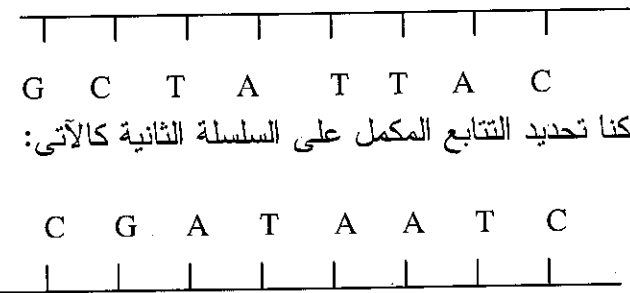 G C T A T T A C
كنا تحديد التتابع المكمل على السلسلة الثانية كالآتى:
C G A T A A T C